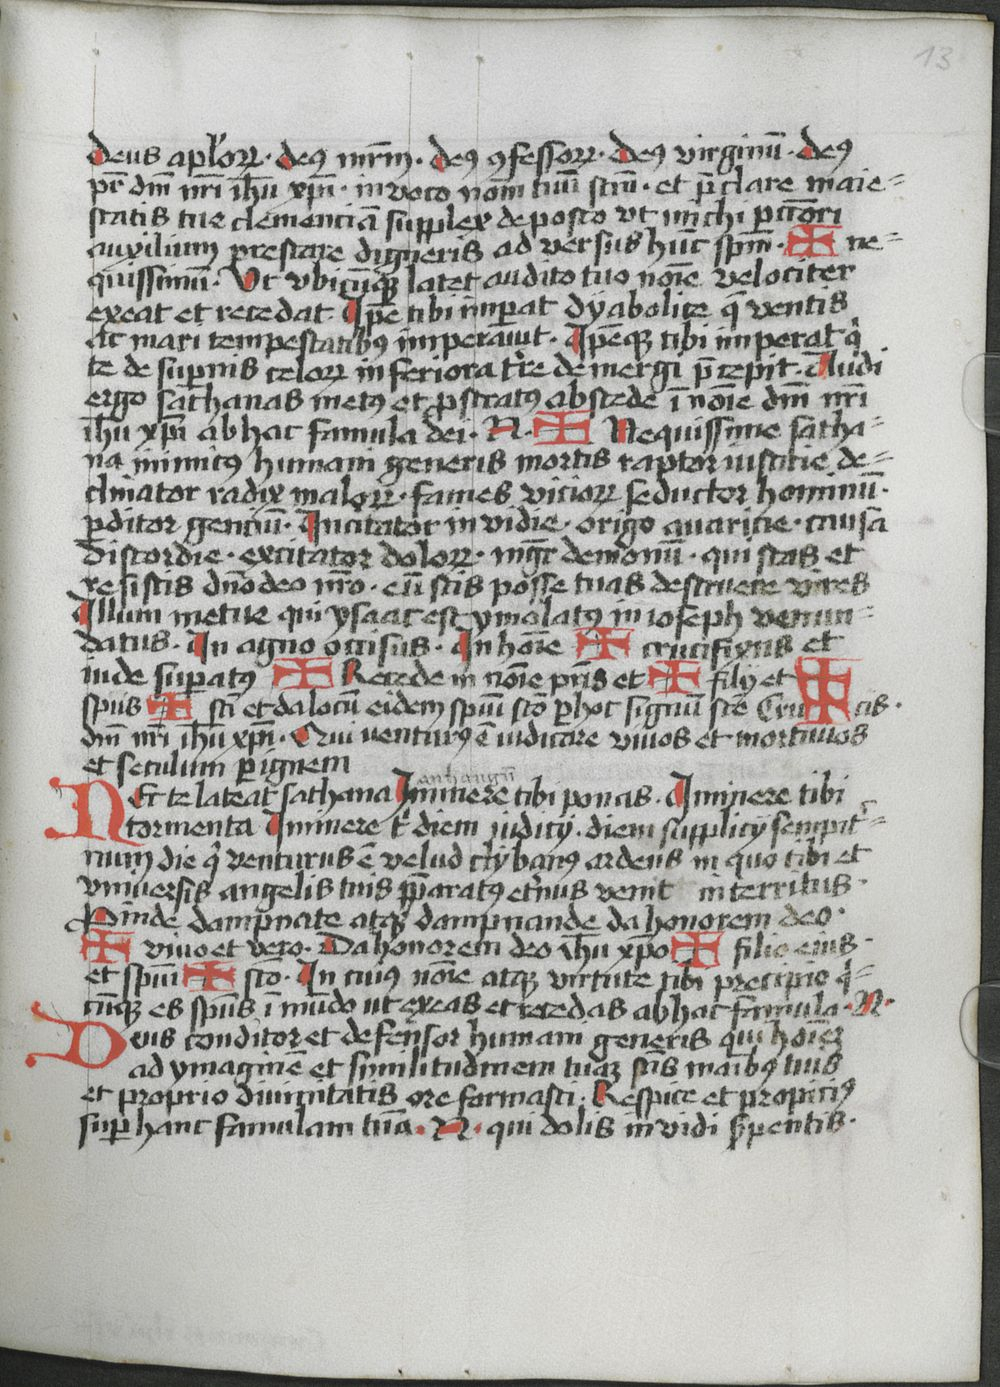 13
Deus aplor̄. deꝯ mr̄m. deꝯ ꝯfessor̄. Deꝯ virginū. Deꝯ
pr̄ dm̄ nr̄i ih̄u xp̄i. in voco nom̄ tuū scm̄. et p̄clare maie=
statis tue clemenciā supplex deposco vt michi pctōri
auxilium prestare digneris ad versus hūc spm̄. ✠ ne=
quissimū. Ut vbicūqꝫ latet audito tuo noīe velociter
exeat et recedat Ip̄e tibi imꝑat dÿabolice q̄ ventis
ac mari tempestatibꝯ imperauit. Ip̄eqꝫ tibi imperat q̇
te de suꝑnis celor̄ inferiora tr̄e demergi p̄cepit. Audi
ergo sathanas metꝯ et ꝓstratus abscede ī noīe dm̄ nr̄i
ih̄u xp̄i ab hac famula dei. N. ✠ Nequissime satha=
na inimicꝯ humani generis mortis raptor iusticie de=
clinator radix malor̄. fames vicior̄ seductor hominū.
ꝑditor genciū. Incitator invidie. origo auaricie. causa
Discordie. excitator dolor̄. mgr̄ demonū. qui stas et
resistis dn̄o deo nr̄o. cū scis posse tuas destruere vires
Illum metue qui ysaac est ymolatꝯ in ioseph venun=
datus. In agno occisus. In hoīe ✠ crucifixus et
inde suꝑatꝯ ✠ Recede in noīe pr̄is et ✠ filij et ✠
spūs ✠ scī et da locū eidem spūi scō ꝑ hoc signū scē Cru ✠ cis.
dm̄ nr̄i ih̄u xp̄i. Qui venturꝯ ē iudicare vivos et mortuvos
et seculum ꝑ ignem
NEc te lateat sathana Iminere tibi penas. Iminere tibi
tormenta Iminere t̄ diem judicÿ. diem supplicÿ sempit̄=
num die q̇ venturus ē velud clÿbanꝯ ardens in quo tibi et
vniversis angelis tuis p̄paratꝯ et̄nus venit interritus.
Proinde dampnate atqꝫ dampnande da honorem deo.
✠ vivo et vero. Da honorem deo ih̄u xp̄o ✠ filio eius.
et spūi ✠ scō. In cuiꝯ noīe atqꝫ virtute tibi precipio q̇=
cūqꝫ es spūs ī mūdo ut exeas et recedas ab hac famula. N.
Deus conditor et defensor humani generis qui hoīeꝫ
ad ymaginē et similitudinem tuaꝫ scīs manibꝯ tuis
et proprio divinitatis ore formasti. Respice et propiciꝯ
suꝑ hanc famulam tuā. N. qui dolis invidi sꝑpentis.